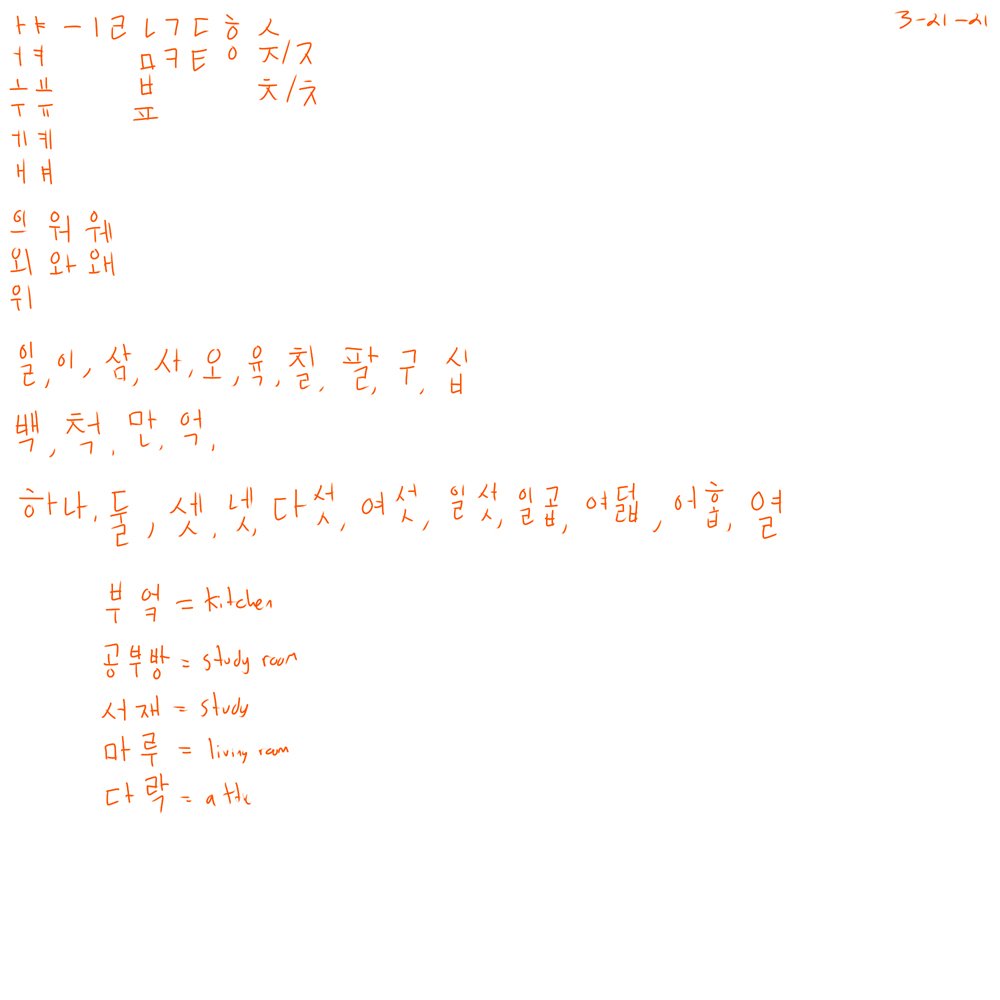 ㅏ ㅑ ㅡ ㅣ ㄹ ㄴ ㄱ ㄷ ㅎ ㅅ 3-21-21
ㅓ ㅕ ㅁ ㅋ ㅌ ㅇ ㅈ/ㅈ
ㅗ ㅛ ㅂ ㅊ/ㅊ
ㅜ ㅠ ㅍ
ㅔ ㅖ
ㅐ ㅒ
의 워 웨
외 와 왜
위
일, 이, 삼, 사, 오, 육, 칠, 팔, 구, 십
백, 척, 만, 억,
하나, 둘, 셋, 넷, 다섯, 여섯, 일섯, 일곱, 여덟, 어홉, 열
부엌 = kitchen
공부방 = study room
서재 = study
마루 = living room
다락 = attic